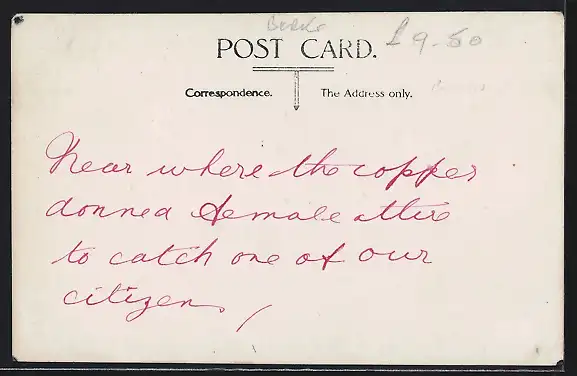 Berks
£9-50
POST CARD.
Correspondence.
The Address only.
Near where the copper
donned female attire
to catch one of our
citizens